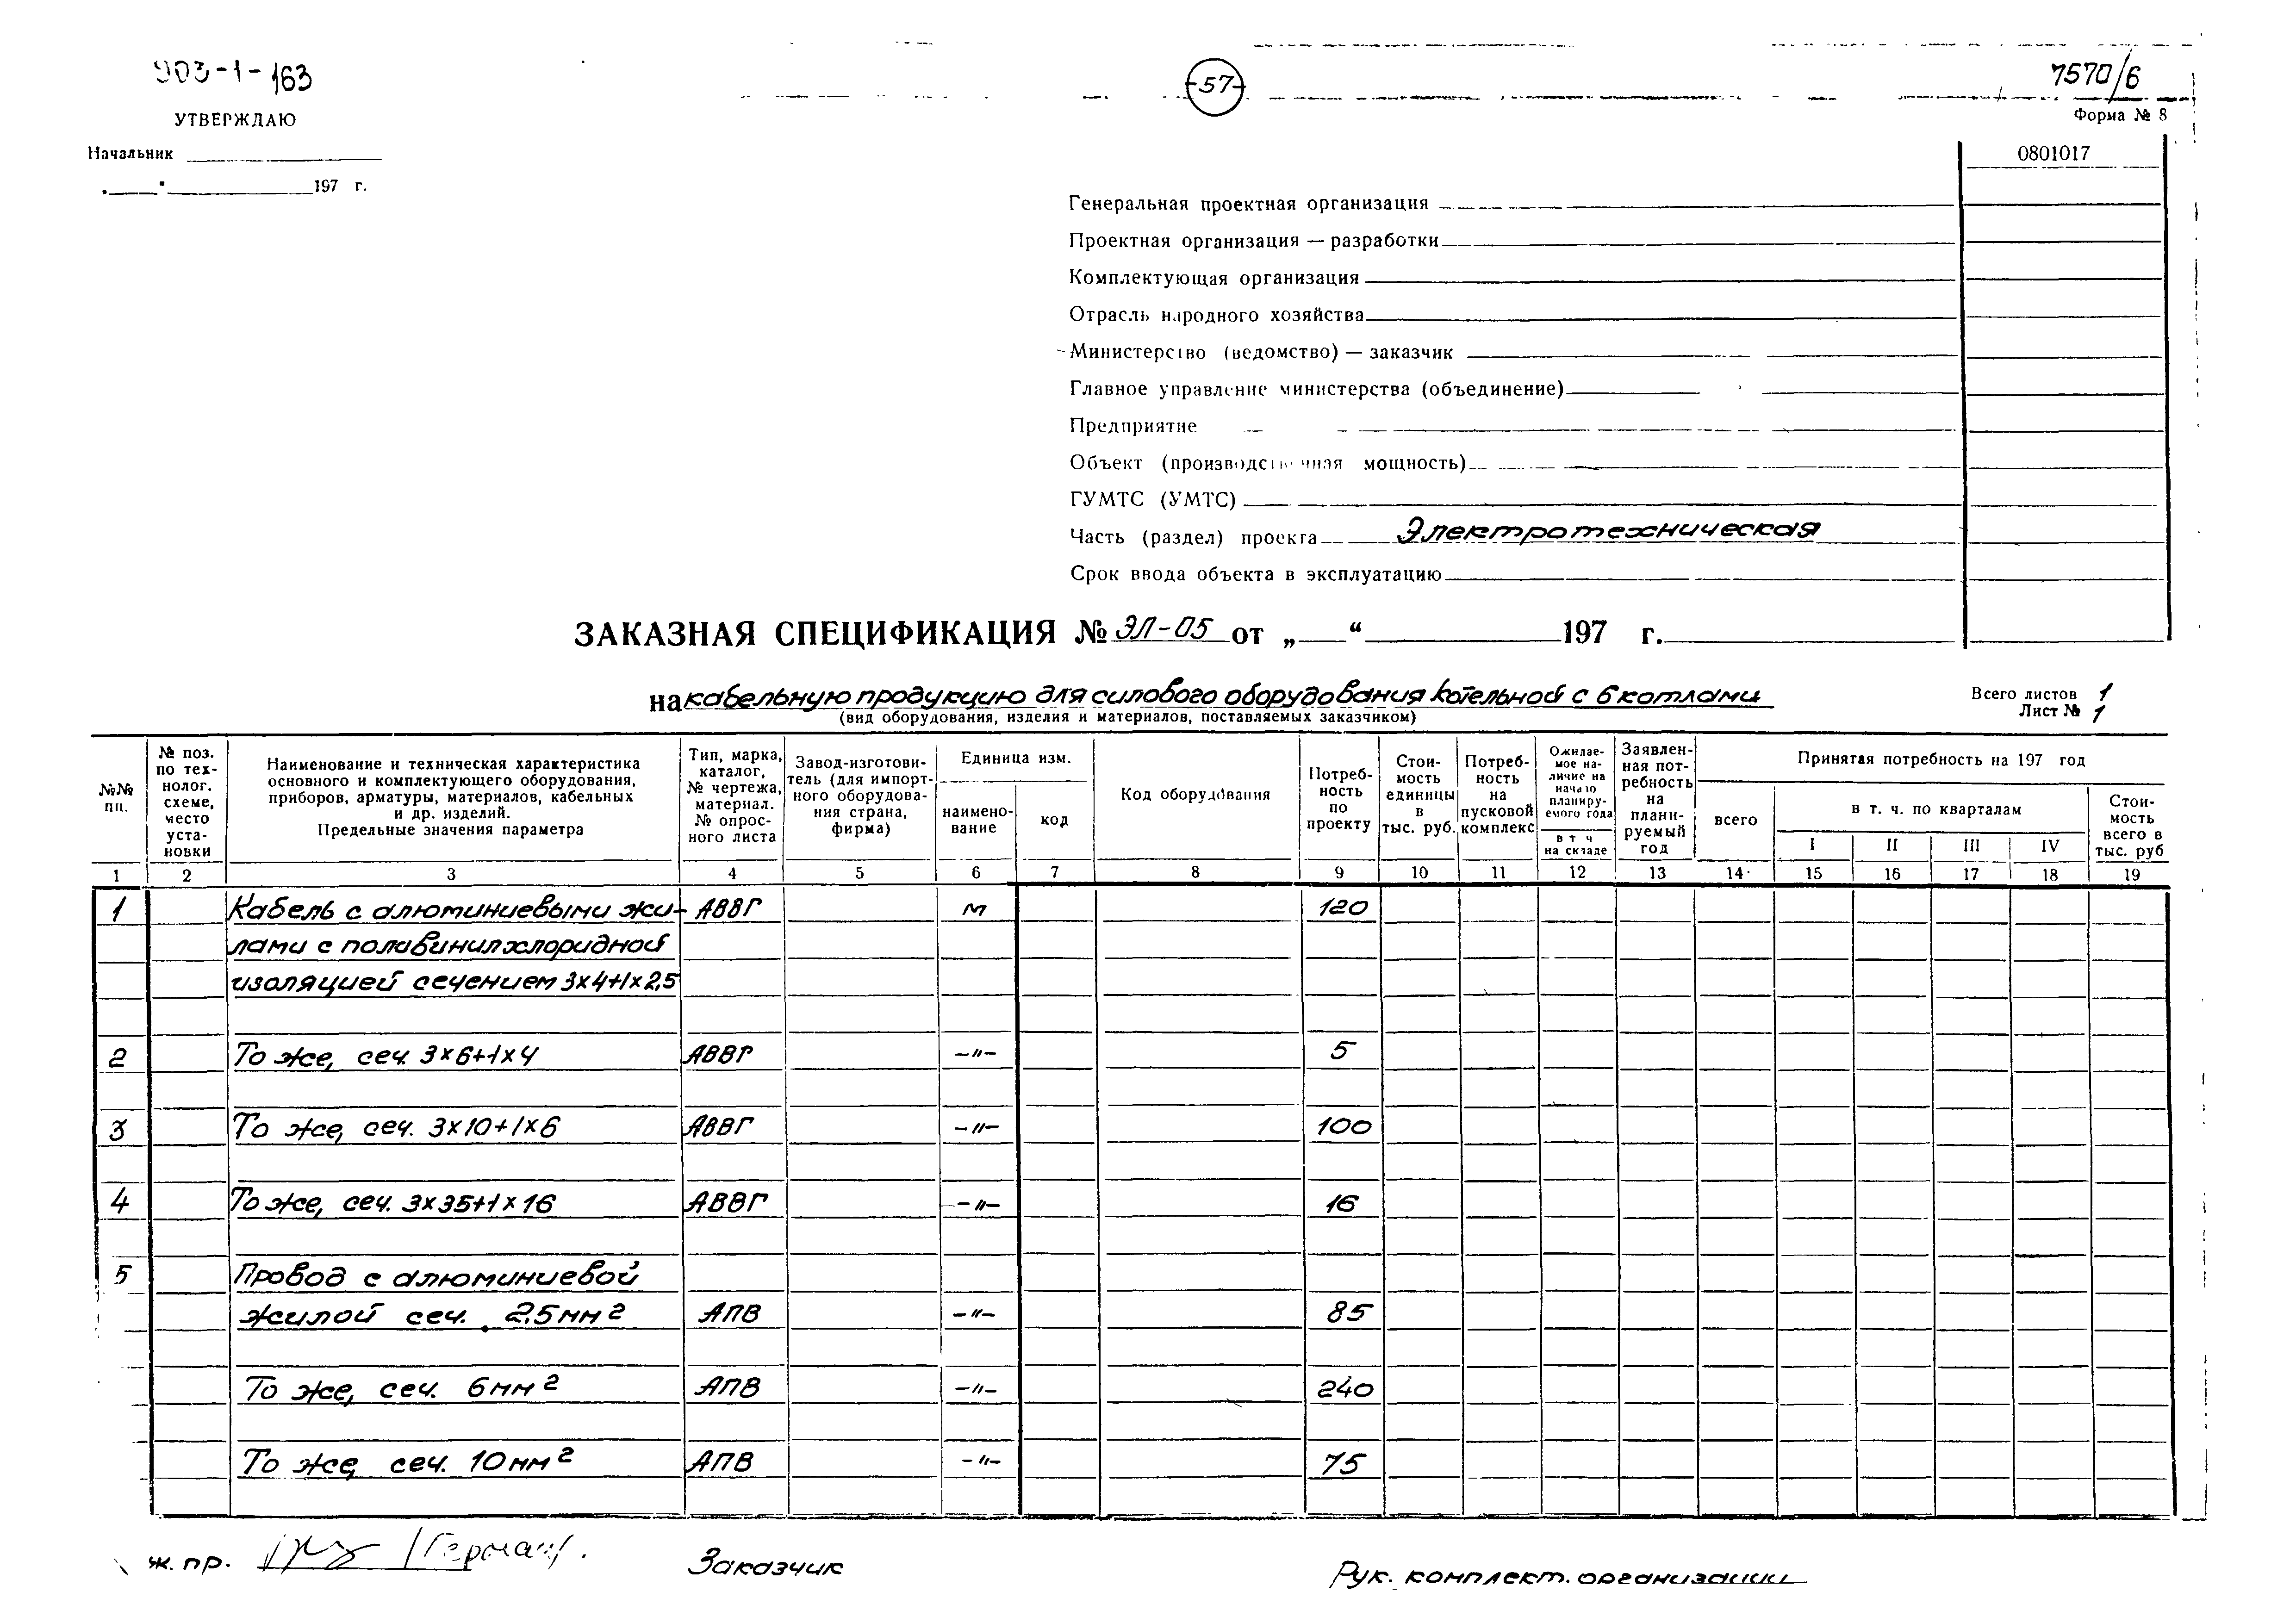 903-1-163
-57-
7570/6
УТВЕРЖДАЮ
Форма № 8
Начальник
„ " 197 г.
0801017
Генеральная проектная организация
Проектная организация — разработки
Комплектующая организация
Отрасль народного хозяйства
Министерство (ведомство) — заказчик
Главное управление министерства (объединение)
Предприятие
Объект (производственная мощность)
ГУМТС (УМТС)
Часть (раздел) проекта Электротехническая
Срок ввода объекта в эксплуатацию
ЗАКАЗНАЯ СПЕЦИФИКАЦИЯ № ЭЛ-05 от „ “ 197 г.
на кабельную продукцию для силового оборудования котельной с 6 котлами
(вид оборудования, изделия и материалов, поставляемых заказчиком)
Всего листов 1
Лист № 1
№№ пп.
№ поз. по технолог. схеме, место установки
Наименование и техническая характеристика основного и комплектующего оборудования, приборов, арматуры, материалов, кабельных и др. изделий. Предельные значения параметра
Тип, марка, каталог, № чертежа, материал. № опросного листа
Завод-изготовитель (для импортного оборудования страна, фирма)
Единица изм.
наименование
код
Код оборудования
Потребность по проекту
Стоимость единицы в тыс. руб.
Потребность на пусковой комплекс
Ожидаемое наличие на начало планируемого года
в т ч на складе
Заявленная потребность на планируемый год
Принятая потребность на 197 год
всего
в т. ч. по кварталам
I II III IV
Стоимость всего в тыс. руб
1 2 3 4 5 6 7 8 9 10 11 12 13 14 15 16 17 18 19
1 Кабель с алюминиевыми жи- АВВГ м 120
лами с поливинилхлоридной
изоляцией сечением 3x4+1x2,5
2 То же, сеч. 3x6+1x4 АВВГ -"- 5
3 То же, сеч. 3x10+1x6 АВВГ -"- 100
4 То же, сеч. 3x35+1x16 АВВГ -"- 16
5 Провод с алюминиевой
жилой сеч. 2,5мм2 АПВ -"- 85
То же, сеч. 6мм2 АПВ -"- 240
То же, сеч. 10мм2 АПВ -"- 75
ж. пр.
Заказчик
Рук. комплект. организации